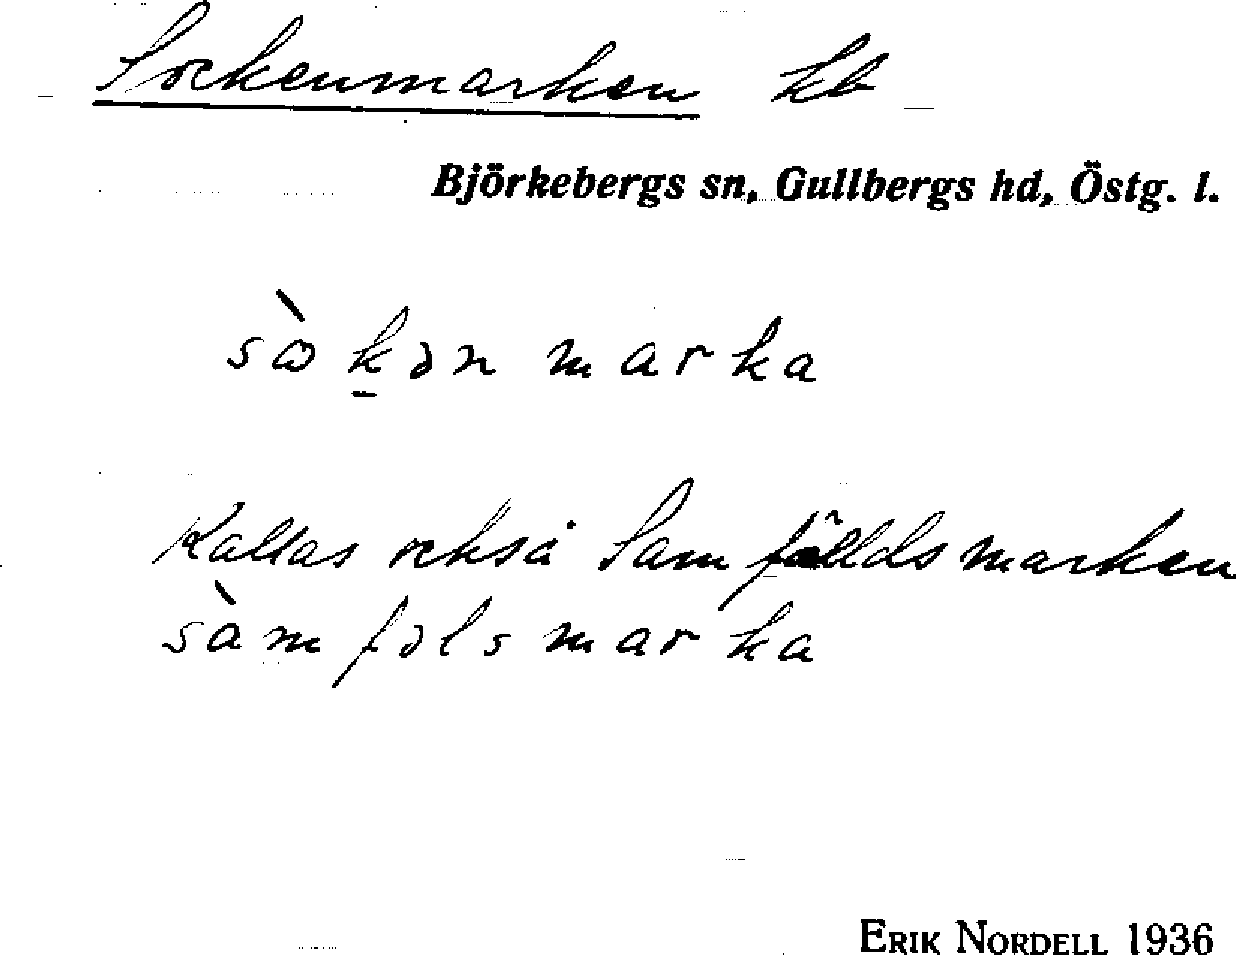 Sockenmarken hb
Björkebergs sn, Gullbergs hd, Östg. l.
sɷ̀k̠ən marka
Kallas också Samfälldsmarken
sàmfəls marka
ERIK NORDELL 1936